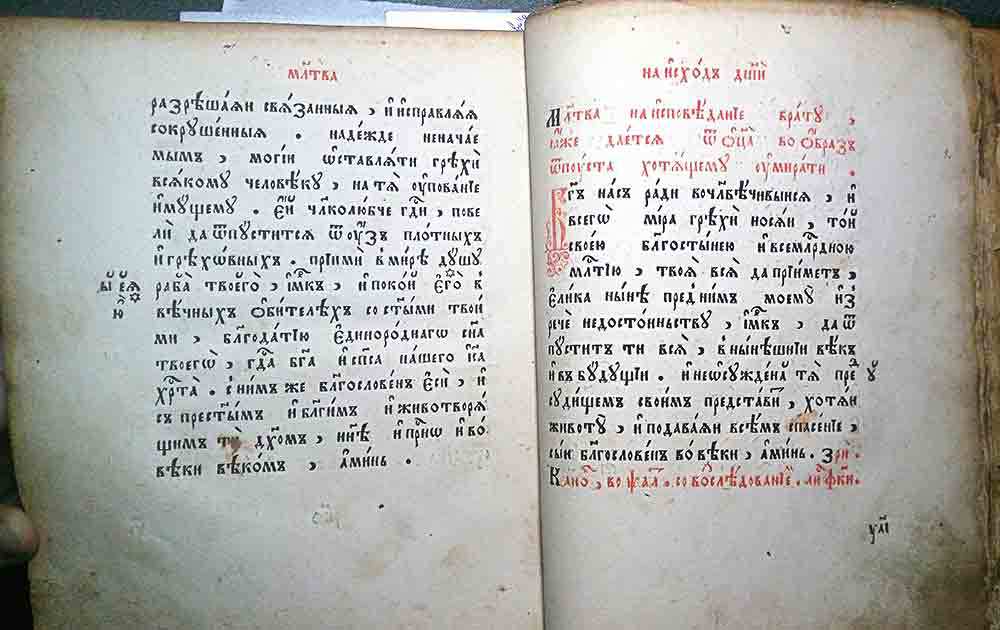 мл҃тва
разрѣша́ѧи свѧ́занныѧ , и҆ и҆справлѧ́ѧ
сокрꙋше́нныѧ . наде́жде ненача́е
мымъ , моги́и ѡ҆ставлѧ́ти грѣхѝ
всѧ́комꙋ человѣ́кꙋ , на тѧ̀ ᲂу҆пова́нїе
и҆мꙋ́щемꙋ . є҆́и чл҃колю́бче гд҇и , пове
лѝ да ѿпꙋ́ститсѧ ѿ ᲂу҆́зъ пло́тныхъ
и҆ грѣхо́вныхъ . прїимѝ в ми́ре дꙋ́шꙋ
раба̀ твоего̀ , и҆м҇къ , и҆ поко́й є҆го̀ в
ы̀ є҆ѧ̀
ю̀
вѣ́чныхъ ѻ҆би́телѣхъ со ст҃ыми твои́
ми , бл҃года́тїю є҆диноро́днагѡ сн҃а
твоегѡ̀ , гд҇а бг҃а и҆ сп҃са на́шего і҆с҃а
хр҇та̀ . с ни́мже бл҃гослове́нъ є҆сѝ , и҆
съ прест҃ы́мъ и҆ бл҃ги́мъ и҆ животворѧ́
щимъ тѝ дх҃омъ , ны́нѣ и҆ при́снѡ и҆ во
вѣ́ки вѣко́мъ , а҆ми́нь .
на и҆схо́дъ дш҃ѝ
Мл҃тва на и҆сповѣ́данїе бра́тꙋ ,
ꙗ҆́же дае́тсѧ ѿ ѻ҆ц҃а̀ во ѻ҆́бразъ
ѿпꙋ́ста хотѧ́щемꙋ ᲂу҆мира́ти .
Бг҃ъ на́съ ра́ди вочл҃вѣ́чивыисѧ , и҆
всегѡ̀ мі́ра грѣхѝ носѧ́и , то́й
свое́ю бл҃госты́нею и҆ всемл҇рдною
мл҇тїю , твоѧ̀ всѧ̀ да прїи́метъ ,
є҆ли́ка ны́нѣ пред ни́мъ моемꙋ̀ и҆з
речѐ недосто́иньствꙋ , и҆м҇къ , да ѿ
пꙋ́ститъ ти всѧ̀ , в ны́нѣшнїи вѣ́къ
и҆ в бꙋ́дꙋщїи . и҆ неѡсꙋжде́на тѧ̀ пре҇ ꙋ
сꙋди́щемъ свои́мъ предста́витъ , хотѧ́и
животꙋ̀ , и҆ подава́ѧи всѣ́мъ спасе́нїе ,
сы́и бл҃гослове́нъ во вѣ́ки , а҆ми́нь . зрѝ .
Кано́н , во ѱал . со въ послѣ́дованїе . ли фк҃и .
ꙋл҃і